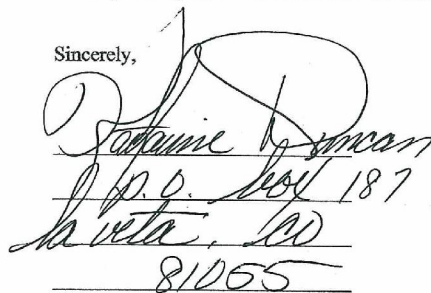 Sincerely,
Duncan
P.O. Box 187
La Veta, CO
81055